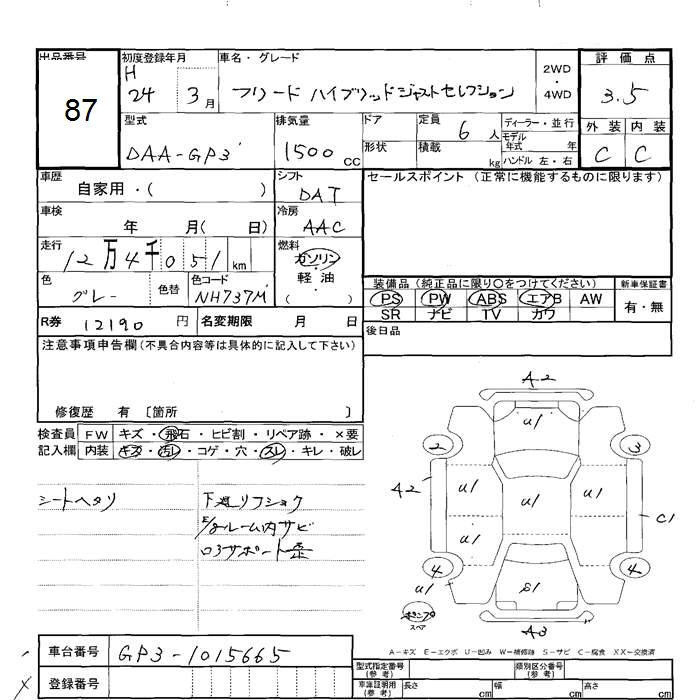 出品番号 初度登録年月 車名・グレード 2WD・4WD 評価点
87 H 24 3月 フリード ハイブリッドジャストセレクション 3.5
型式 排気量 ドア 定員 6人 ディーラー・並行 外装 内装
DAA-GP3 1500cc 形状 積載 kg モデル年式 年 C C
ハンドル 左・右
車歴 自家用・( ) シフト DAT セールスポイント (正常に機能するものに限ります)
車検 年 月( 日) 冷房 AAC
走行 12万4千051km 燃料 ガソリン・軽油・( )
色 グレー 色替 色コード NH737M 装備品 (純正品に限り○をつけてください) 新車保証書
PS PW ABS エアB AW 有・無
SR ナビ TV カワ
R券 12190円 名変期限 月 日 後日品
注意事項申告欄(不具合内容等は具体的に記入して下さい)
修復歴 有 〔箇所 〕
検査員 FW キズ・飛石・ヒビ割・リペア跡・×要
記入欄 内装 キズ・汚レ・コゲ・穴・スレ・キレ・破レ
シートヘタリ 下廻リフショク
E/gルーム内サビ
ロアサポート
A2
U1
2 3
A2 U1 U1 U1 C1
U1
4 4
U1 S1
スペア
A3
A－キズ E－エクボ U－凹み W－補修跡 S－サビ C－腐食 XX－交換済
車台番号 GP3-1015665
登録番号
型式指定番号(参考) 類別区分番号(参考)
車庫証明用(参考) 長さ cm 幅 cm 高さ cm